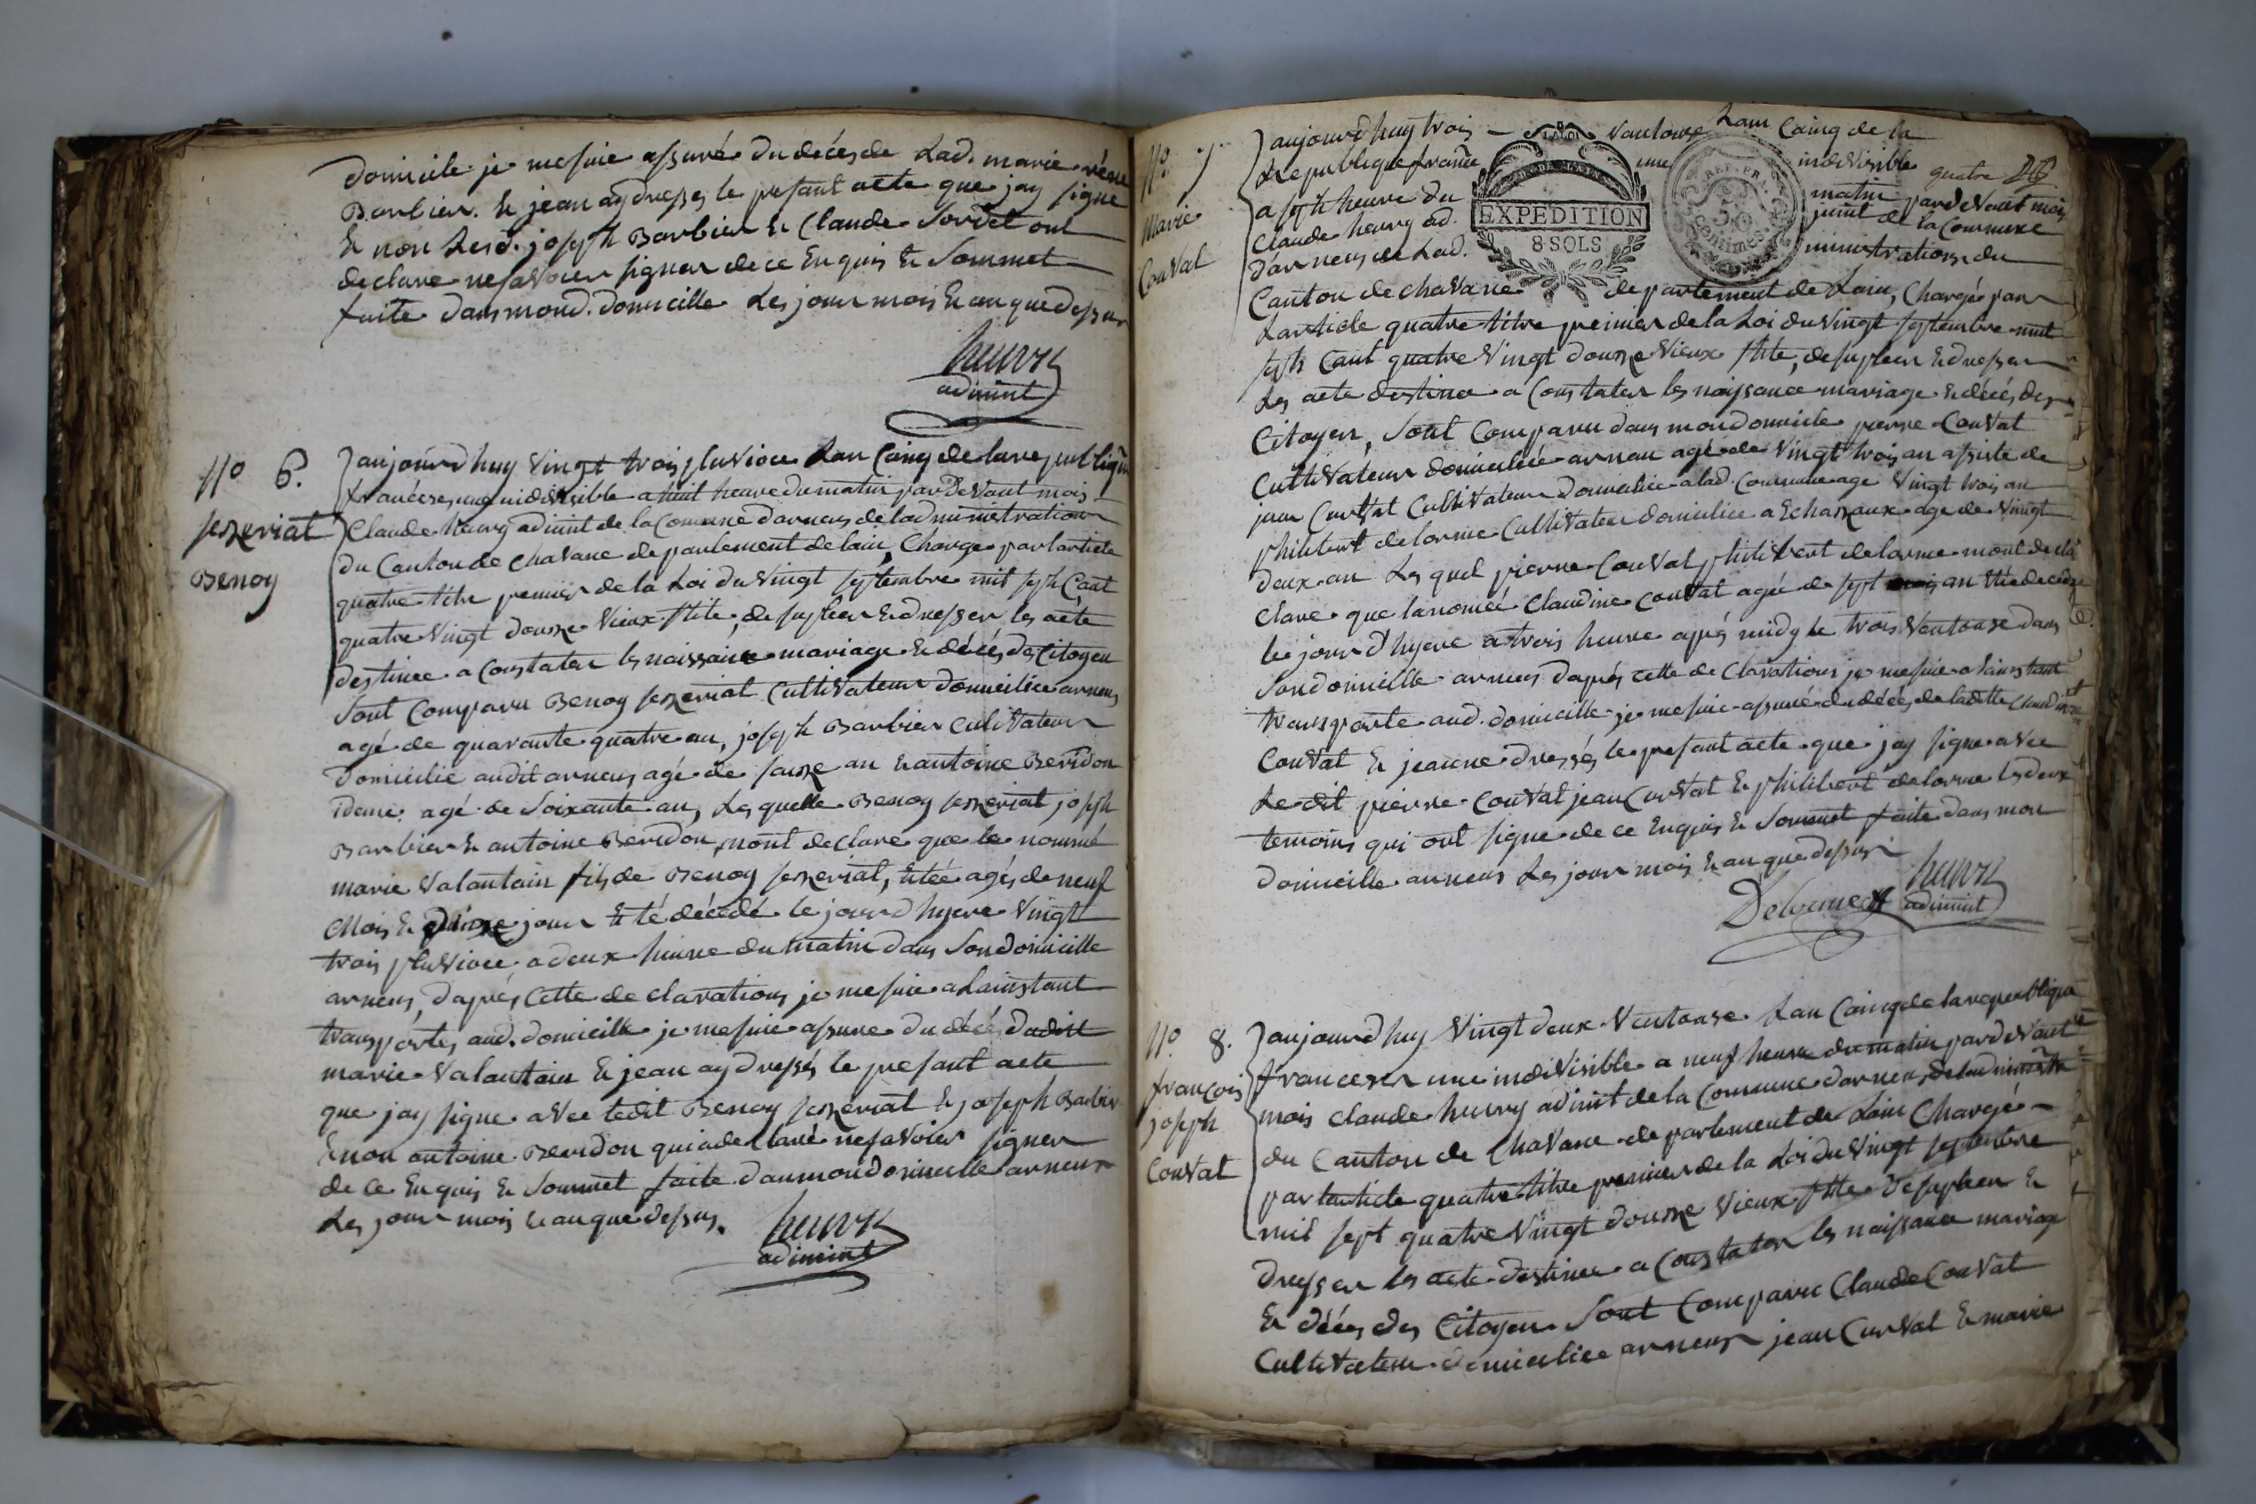 domicile je me suie assuré du décés de Lad. marie réene
Barbier. & jean ay dressés le presant acte que jay signe
& non Lesd. joseph Barbier & Claude Sordet ont
declare ne savoier signer de ce Enquis & Sommet
faite dans mond. domicille Les jour mois & an que dessus
heurry
adimint
No 6.
sezeriat
Benoy
aujourd'huy vingt trois pluvioce Lan Cainq de la republique
francéese, une indivisible a huit heure du matin par devant mois
Claude heurry adimint de la Comune darneus de ladministration
du Canton de chavane departement de lain, Charge par larticle
quatre titre premier de la Loi du vingt septembre mil sept Cant
quatre vingt douzse vieux stile, desupleer & dresser les acte
destinee a constater les naissaince mariage & décés des Citoyen
Sont Comparu Benoy sezeriat Cultivateur domicilice arneus
agé de quarante quatre an, joseph Barbier Cultivateur
domicilié audit arneus agé de saize an & antoine Beridon
Idem: agé de Soixante an, Lesquelle Benoy sezeriat joseph
Barbier & antoine Beridon, mont declare que le nommé
marie Valantain fils de Benoy sezeriat, Etée agés de neuf
Mois & quinze jour Et té décédé le jourd'hyere Vingt
trois pluvioce a deux heure du matin dans Son domicille
arneus, daprés Cette declarations je me suie a Lainstant
transportés aud. domicille je me suie assure du décés dudit
marie Valantain & jean ay dressés le presant acte
que jay signe avec ledit Benoy sezeriat & joseph Barbier
& non antoine Beridon qui a declaré ne savoier signer
de ce Enquis & Sommet faite dan mon domicille arneus
Les jour mois & an que dessus.
heurry
adimint
No. 7.
Marie
Couvat
aujourd'huy trois vantouse Lan Cainq de la
Republique francse une indivisible
quatre
a sept heure du matin pardevant mois
Claude heurry ad. jimt de la Commune
darneus de Lad. ministrations du
LA LOI
EXPEDITION
8 SOLS
REP. FRA.
50
Centimes
Canton de chavane departement de Lain, Chargé par
Larticle quatre titre premier de la Loi du vingt septembre mil
sept Cant quatre Vingt douzse vieux stile, desupleer & dresser
Les acte destinee a Constater les naissance mariage & décés des
Citoyen, Sont Comparu dans mon domicile pierre Couvat
Cultivateur domicilice arneu agé de vingt trois an assiste de
jean Curvat Cultivateur domicilice alad. Commune age vingt trois an
philibert delorme Cultivateur domicilice a Echazeaux age de vingt
deux an Lesquel pierre Couvat philibert delorme mont de cla
clare que la nomée Claudine Couvat agée de sept an Et té decede
le jourd'hyere a trois heure aprés midy le trois Ventouse dans
Son domicille arneus daprés cette declarations je me suie a lainstant
transporte aud. domicille je me suie assuré du décés de ladtte Claudine
Couvat & jeanne dressés le presant acte que jay signe avec
Le dit pierre Couvat jean Curvat & philibert delorme les deux
temoins qui ont signe de ce Enquis & Sommet faite dans mon
domicille arneus Les jour mois & an que dessus
Delorme heurry
adimint
No. 8.
francois
joseph
Couvat
aujourd'huy Vingt deux Ventouse Lan Cainq de la republique
francese une indivisible a neuf heure du matin pardevant
mois Claude heurry adimit de la Commune darneus de ladministr
du Canton de Chavane departement de Lain Chargé
par larticle quatre titre premier de la Loi du vingt septembre
mil sept quatre vingt douzse vieux stile desupleer &
dresser les acte destinee a Constater les naissance mariage
& décés des Citoyen. Sont Comparu Claude Couvat
Cultivateur domicilice arneus jean Curvat & marie